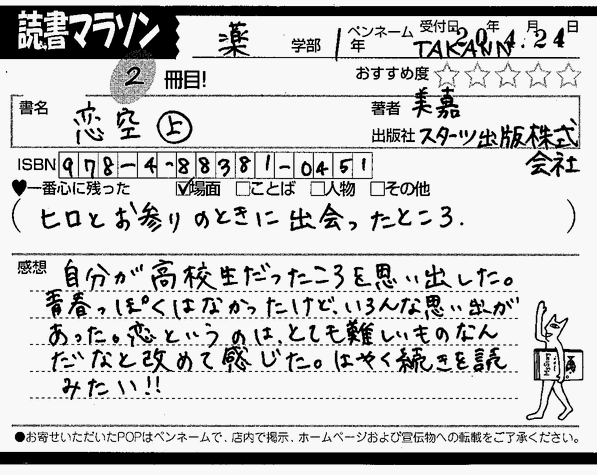 読書マラソン
薬 学部 1年 ペンネーム TAKAHIN 受付日 20年 4月24日
2 冊目! おすすめ度 ☆☆☆☆☆
書名 恋空 上 著者 美嘉
出版社 スターツ出版株式会社
ISBN 978-4-88381-0451
♥一番心に残った ☑場面 □ことば □人物 □その他
(ヒロとお参りのときに出会ったところ.)
感想 自分が高校生だったころを思い出した。
青春っぽくはなかったけど、いろんな思い出が
あった。恋というのは、とても難しいものなん
だなと改めて感じた。はやく続きを読
みたい!!
●お寄せいただいたPOPはペンネームで、店内で掲示、ホームページおよび宣伝物への転載をご了承ください。